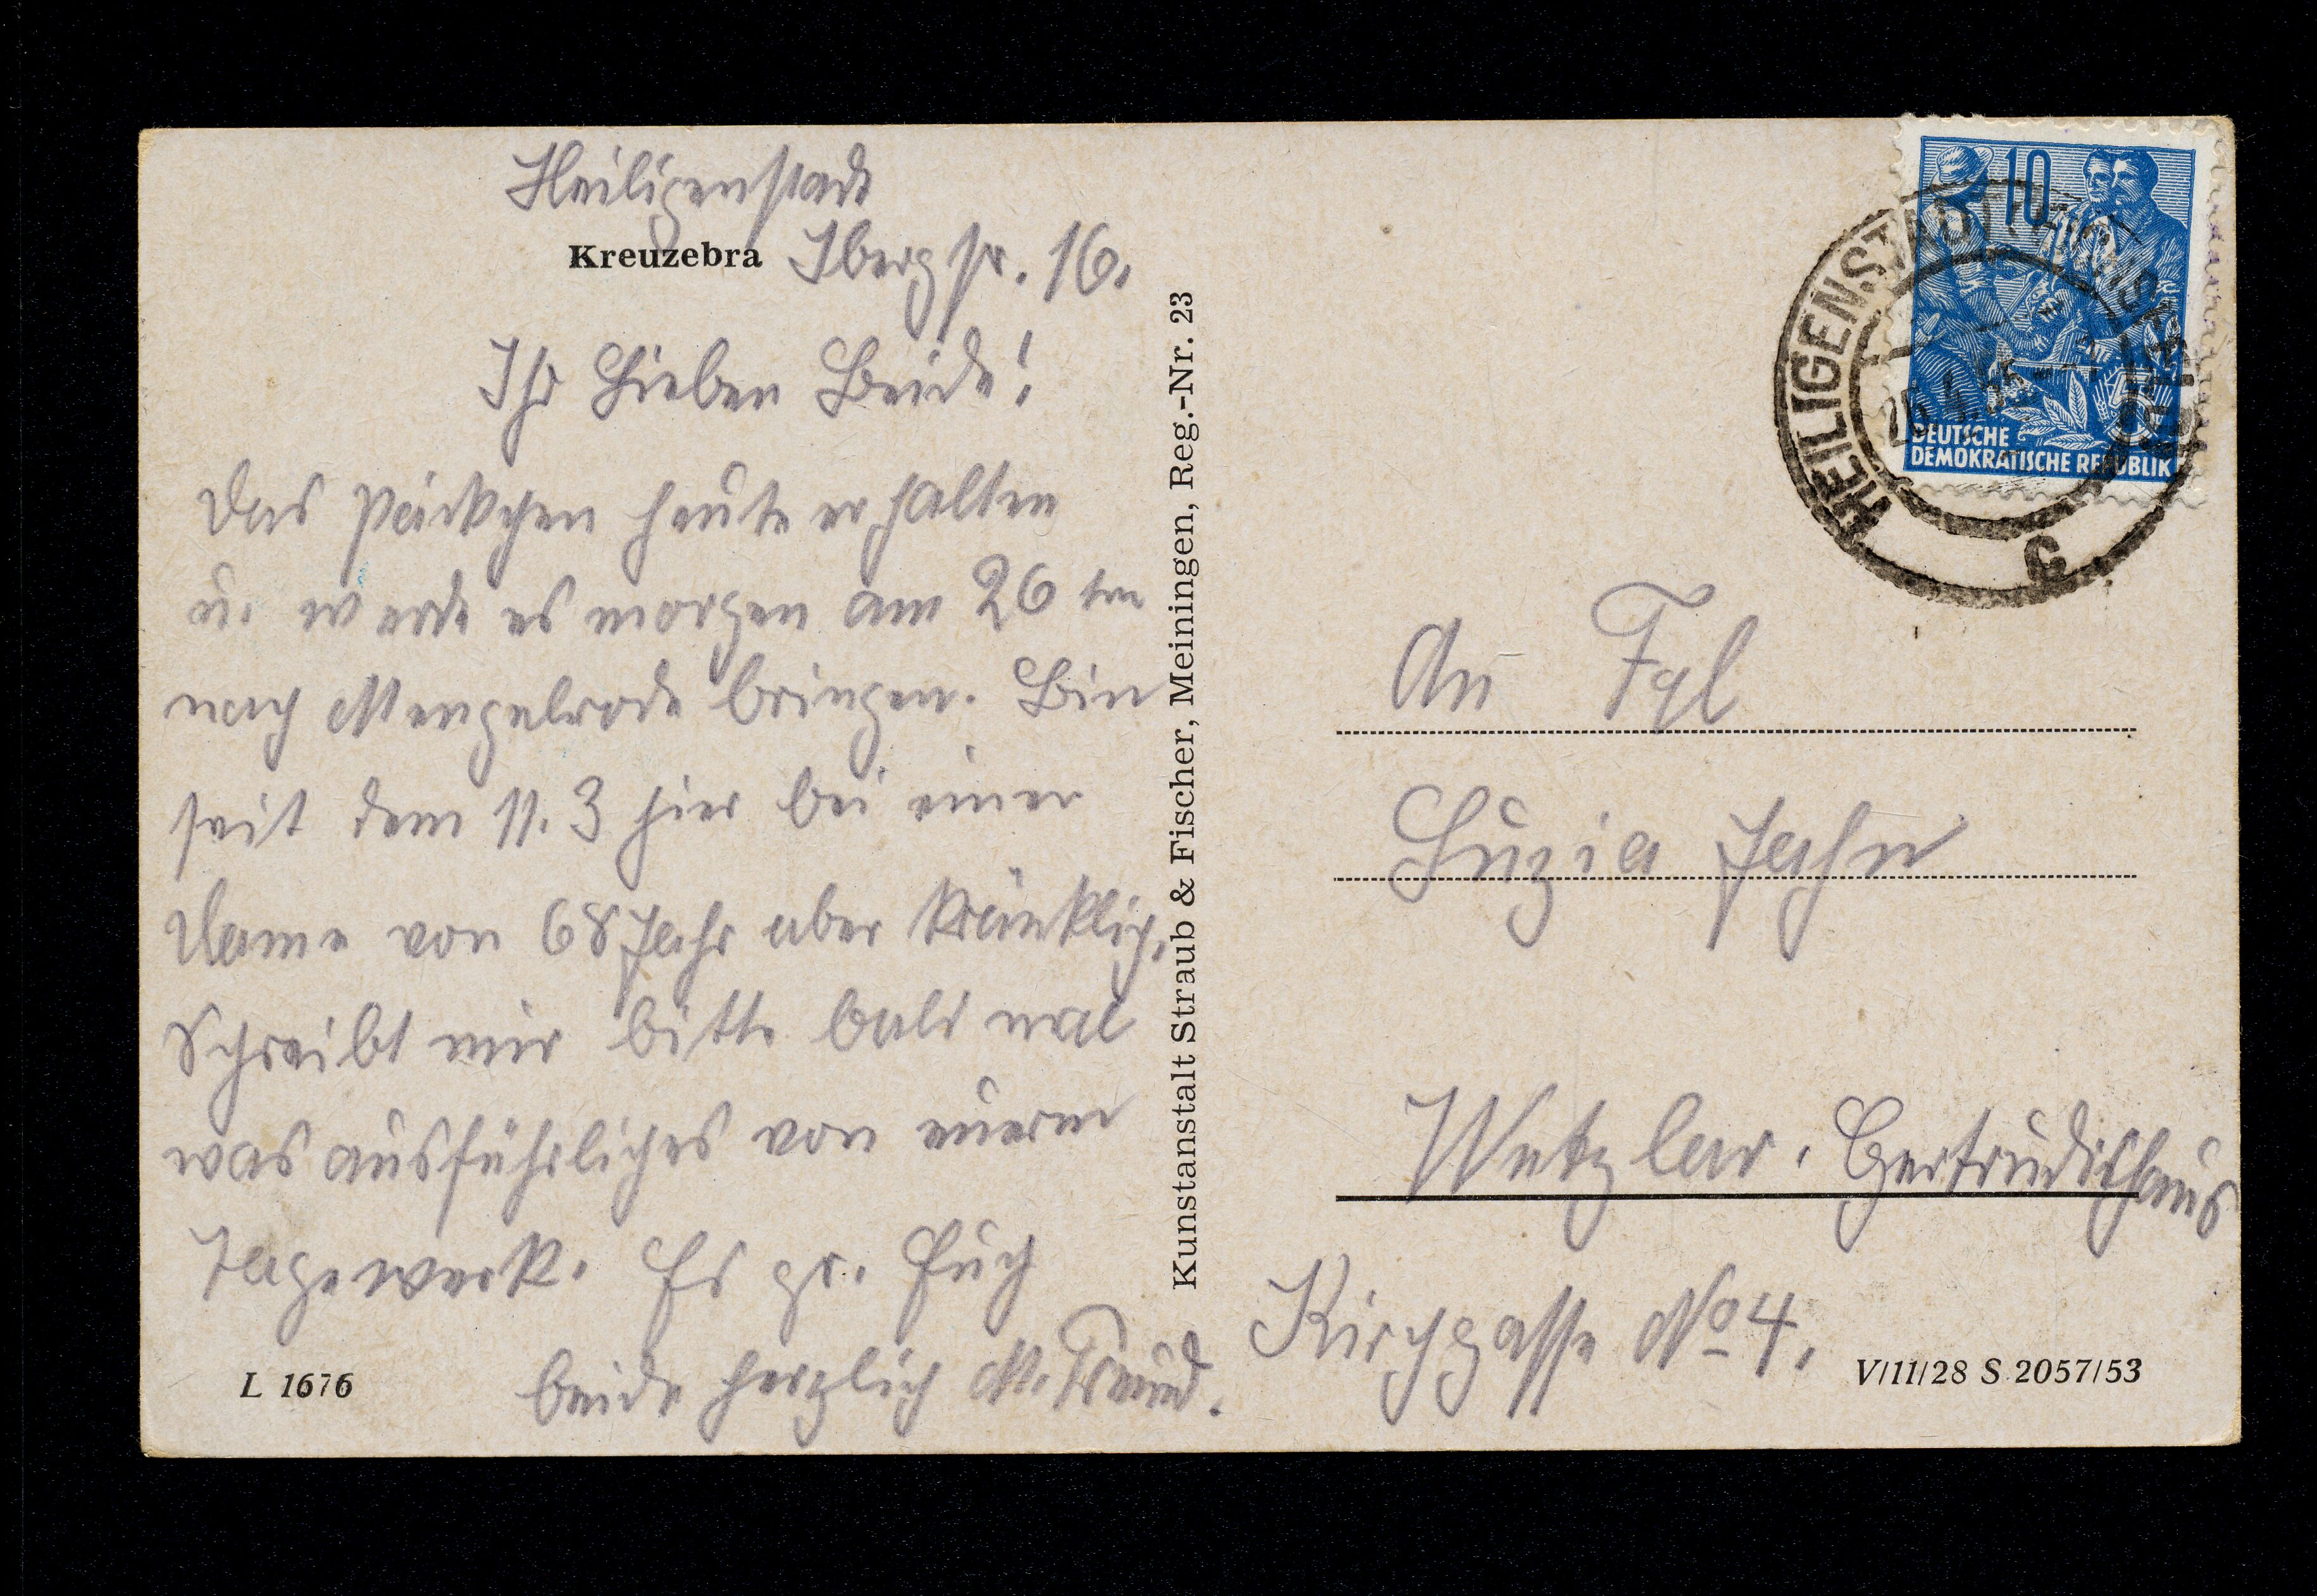 Heiligenstadt
Kreuzebra Ibergstr. 16.
Ihr Lieben Beide!
Das Päckchen heute erhalten
u. werde es morgen am 26 ten
nach Mengelrode bringen. Bin
seit dem 11. 3 hier bei einer
Dame von 68 Jahr aber kränklich.
Schreibt mir bitte bald mal
was ausführliches von euerm
Tagewerk. Es gr. Euch
beide herzlich M. Freund.
L 1676
Kunstanstalt Straub & Fischer, Meiningen, Reg.-Nr. 23
10
DEUTSCHE
DEMOKRATISCHE REPUBLIK
HEILIGENSTADT
c
An Frl
Luzia Jahn
Wetzlar. Gertrudishaus
Kirchgasse No 4.
V/11/28 S 2057/53